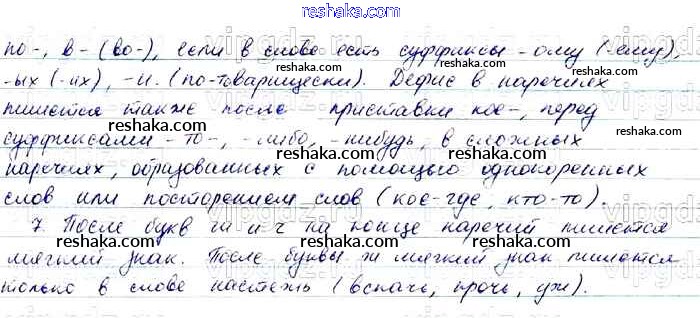 reshaka.ru
по-, в- (во-), если в слове есть суффиксы -ому (-ему),
-ых (-их), -и. (по-товарищески). Дефис в наречиях
пишется также после приставки кое-, перед
суффиксами -то-, -либо, -нибудь, в сложных
наречиях, образованных с помощью однокоренных
слов или повторением слов (кое-где, кто-то).
7. После букв ш и ч на конце наречий пишется
мягкий знак. После буквы ж мягкий знак пишется
только в слове настежь (вспачь, прочь, уж).
reshaka.ru